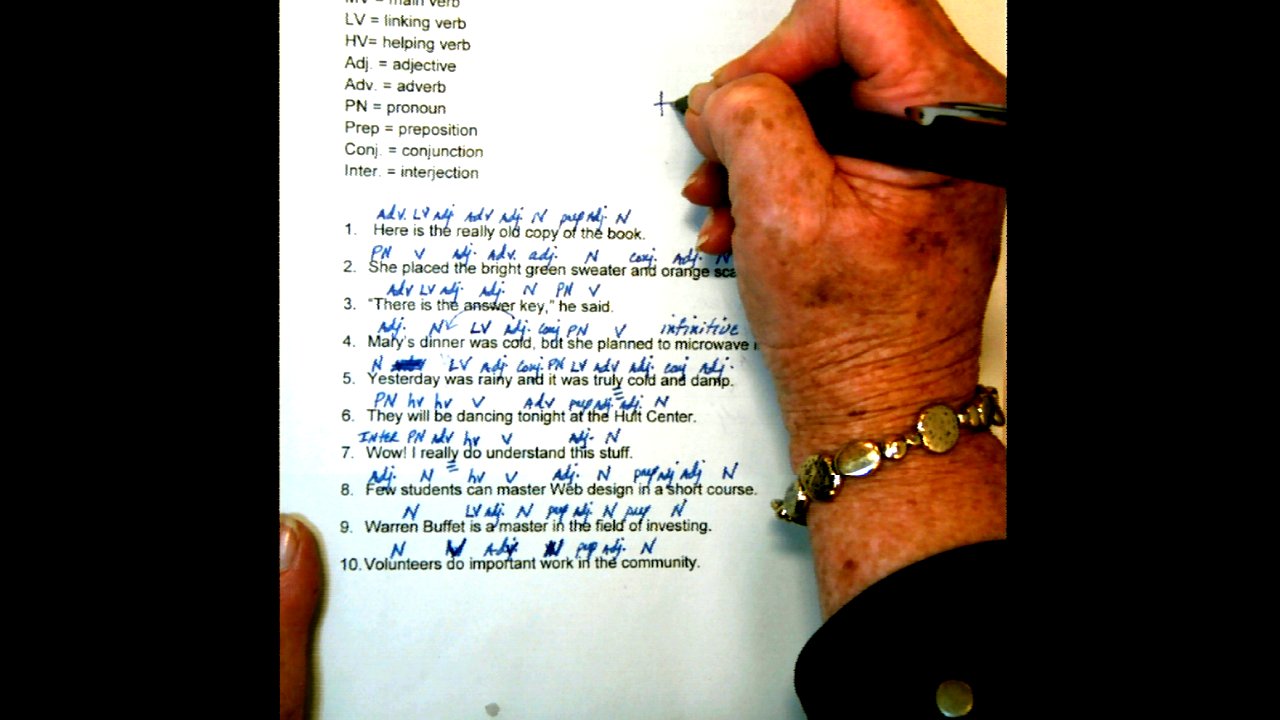 MV = main verb
LV = linking verb
HV= helping verb
Adj. = adjective
Adv. = adverb
PN = pronoun
Prep = preposition
Conj. = conjunction
Inter. = interjection
Adv. LV Adj. Adv Adj. N prep Adj. N
1. Here is the really old copy of the book.
PN V Adj. Adv. adj. N conj. Adj. N
2. She placed the bright green sweater and orange sca
Adv LV Adj. Adj. N PN V
3. "There is the answer key," he said.
Adj. N LV Adj. conj PN V infinitive
4. Mary's dinner was cold, but she planned to microwave
N LV Adj conj. PN LV adv Adj. conj Adj.
5. Yesterday was rainy and it was truly cold and damp.
PN hv hv V Adv prep adj. adj N
6. They will be dancing tonight at the Hult Center.
Inter PN adv hv V adj. N
7. Wow! I really do understand this stuff.
Adj. N hv V Adj. N prep adj adj N
8. Few students can master Web design in a short course.
N LV adj. N prep adj. N prep N
9. Warren Buffet is a master in the field of investing.
N V Adj. N prep adj. N
10. Volunteers do important work in the community.